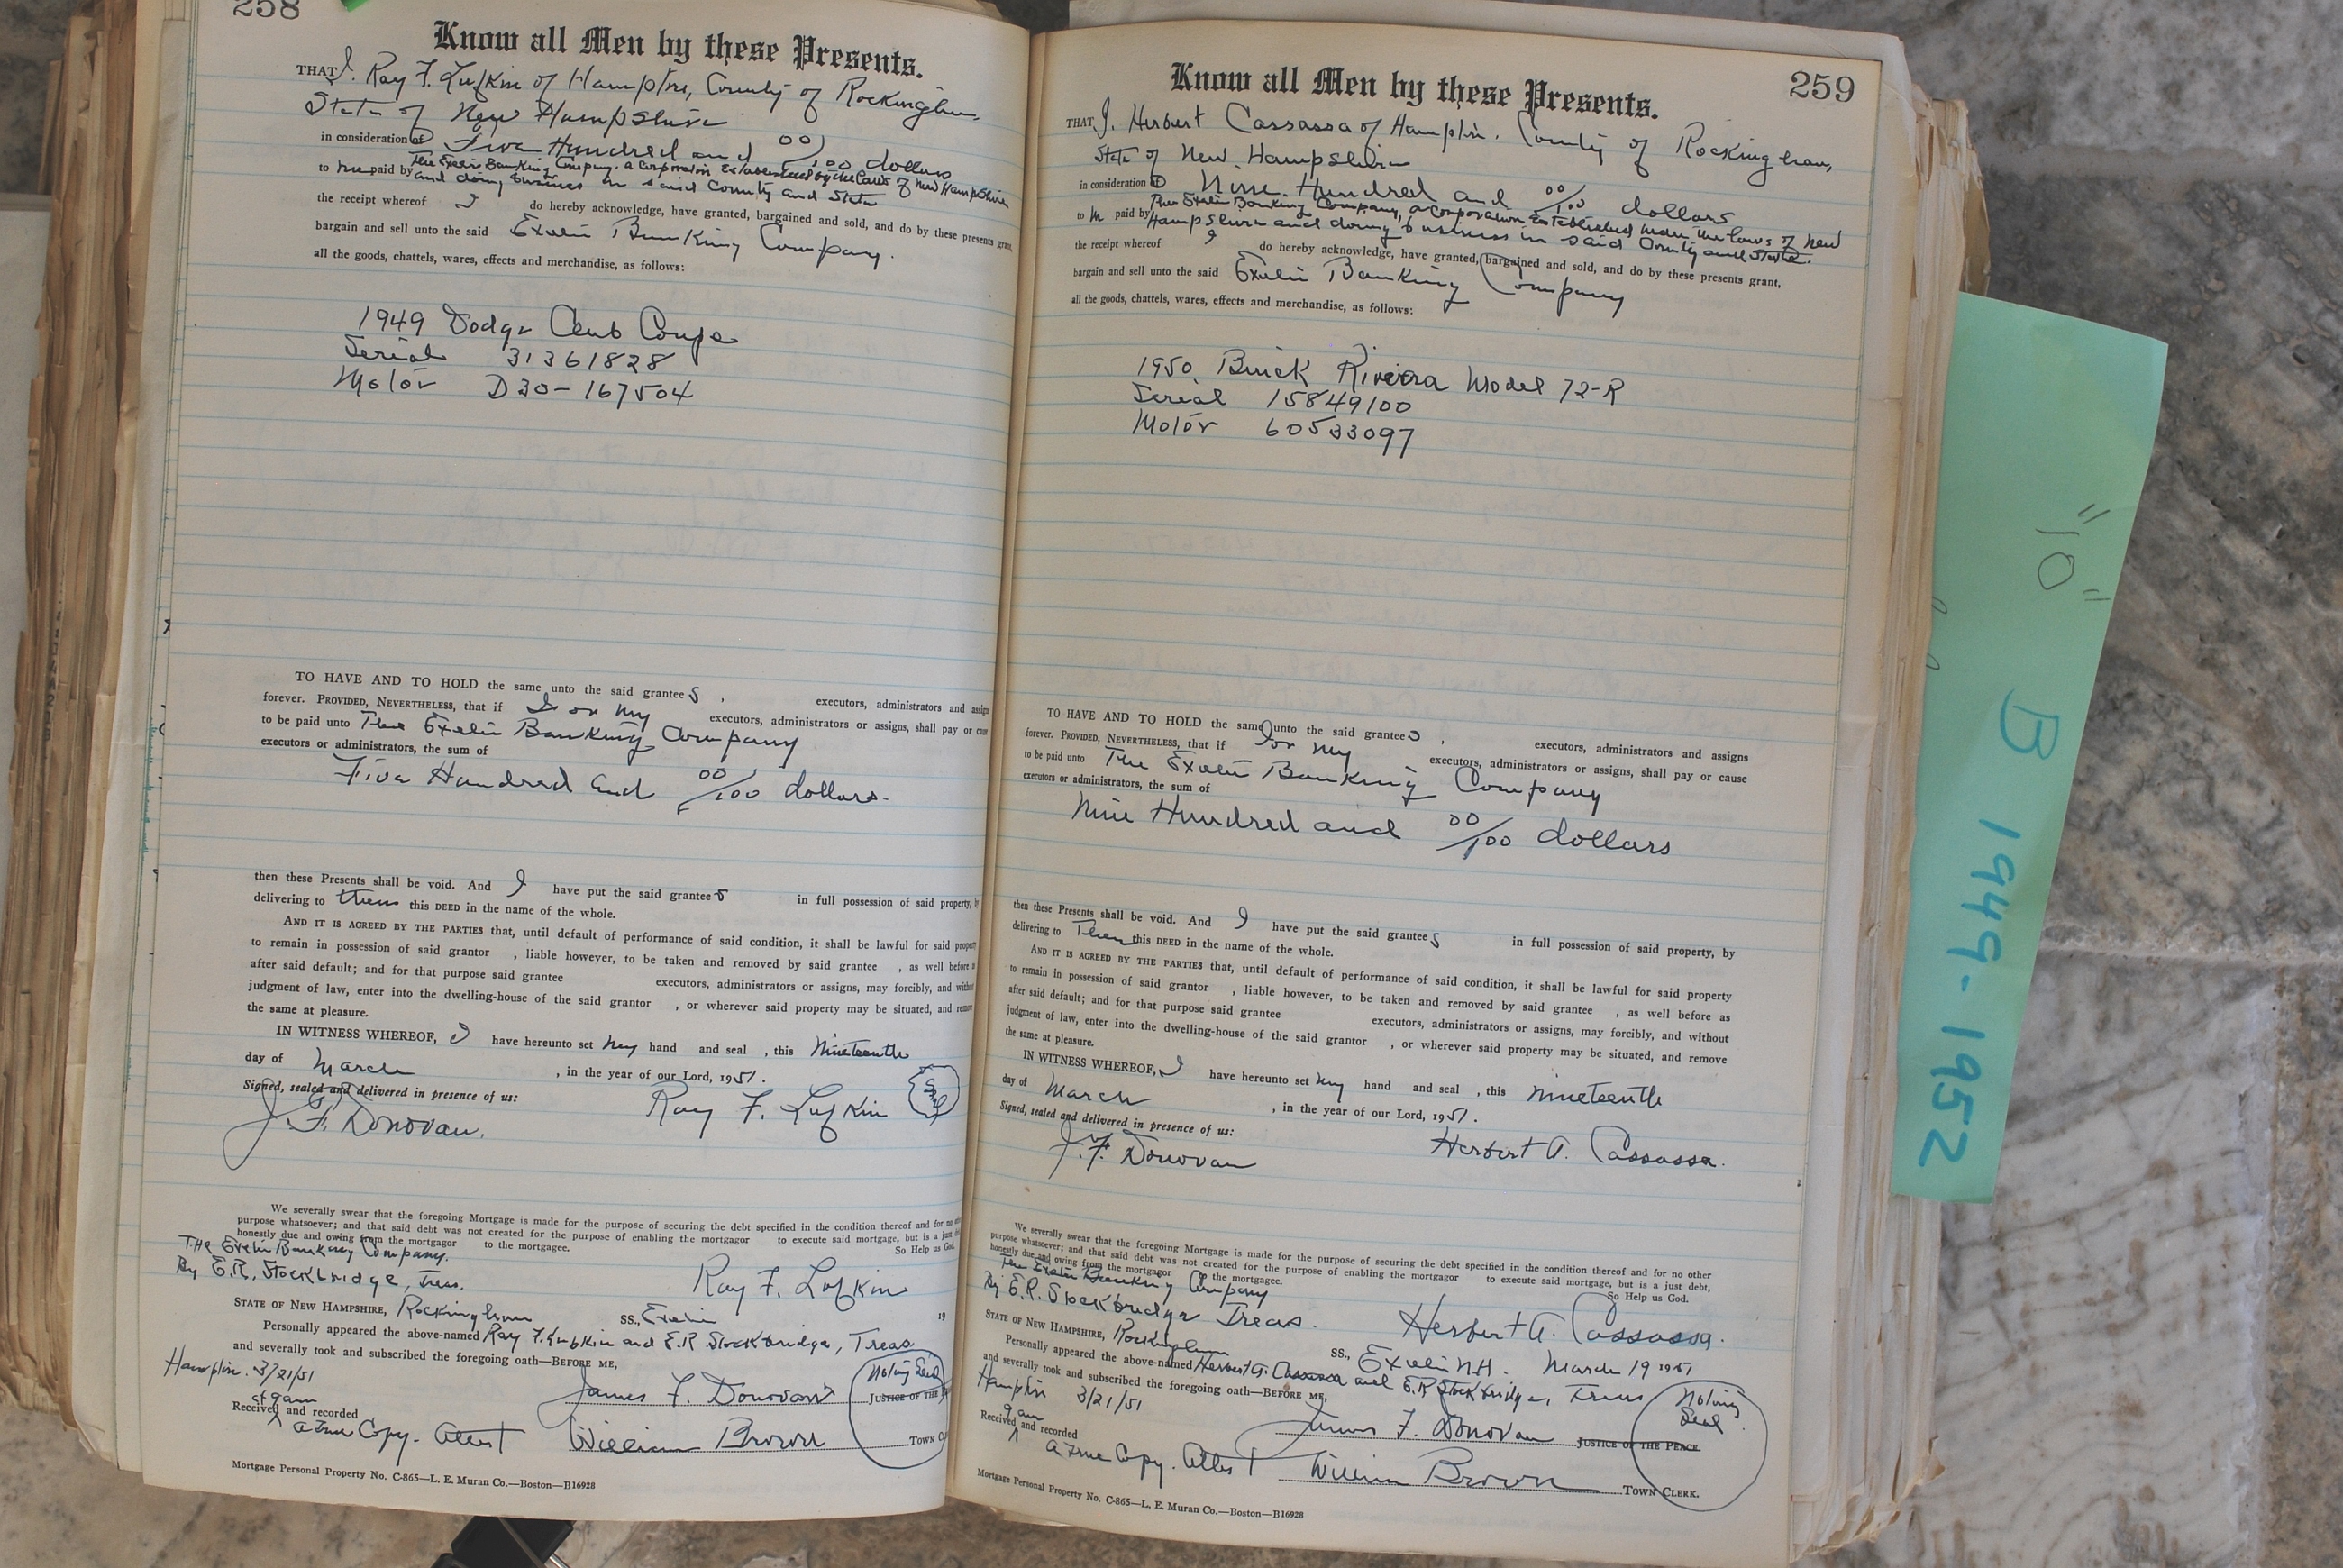 258
Know all Men by these Presents.
THAT I. Ray F. Lufkin of Hampton, County of Rockingham,
State of New Hampshire
in consideration of Five Hundred and 00/100 dollars
to me paid by The Exeter Banking Company, a corporation established by the laws of New Hampshire
and doing business in said County and State
the receipt whereof I do hereby acknowledge, have granted, bargained and sold, and do by these presents grant,
bargain and sell unto the said Exeter Banking Company.
all the goods, chattels, wares, effects and merchandise, as follows:
1949 Dodge Club Coupe
Serial 31361828
Motor D30-167504
TO HAVE AND TO HOLD the same unto the said grantee s , executors, administrators and assigns
forever. PROVIDED, NEVERTHELESS, that if I or my executors, administrators or assigns, shall pay or cause
to be paid unto The Exeter Banking Company
executors or administrators, the sum of
Five Hundred and 00/100 dollars-
then these Presents shall be void. And I have put the said grantee s in full possession of said property, by
delivering to them this DEED in the name of the whole.
AND IT IS AGREED BY THE PARTIES that, until default of performance of said condition, it shall be lawful for said property
to remain in possession of said grantor , liable however, to be taken and removed by said grantee , as well before as
after said default; and for that purpose said grantee executors, administrators or assigns, may forcibly, and without
judgment of law, enter into the dwelling-house of the said grantor , or wherever said property may be situated, and remove
the same at pleasure.
IN WITNESS WHEREOF, I have hereunto set my hand and seal , this nineteenth
day of March , in the year of our Lord, 1951.
Signed, sealed and delivered in presence of us:
J. F. Donovan. Ray F. Lufkin Seal
We severally swear that the foregoing Mortgage is made for the purpose of securing the debt specified in the condition thereof and for no other
purpose whatsoever; and that said debt was not created for the purpose of enabling the mortgagor to execute said mortgage, but is a just debt,
honestly due and owing from the mortgagor to the mortgagee. So Help us God.
The Exeter Banking Company.
By E.R. Stockbridge, Treas. Ray F. Lufkin
STATE OF NEW HAMPSHIRE, Rockingham SS., Exeter 19
Personally appeared the above-named Ray F. Lufkin and E.R. Stockbridge, Treas.
and severally took and subscribed the foregoing oath—BEFORE ME,
Hampton. 3/21/51 Notary Seal
at 9am James F. Donovan JUSTICE OF THE P
Received and recorded
a True Copy. Attest William Brown TOWN C
Mortgage Personal Property No. C-865—L. E. Muran Co.—Boston—B16928
259
Know all Men by these Presents.
THAT I. Herbert Cassassa of Hampton. County of Rockingham,
State of New Hampshire
in consideration of Nine Hundred and 00/100 dollars
to me paid by The Exeter Banking Company, a corporation established under the laws of New
Hampshire and doing business in said County and State.
the receipt whereof I do hereby acknowledge, have granted, bargained and sold, and do by these presents grant,
bargain and sell unto the said Exeter Banking Company
all the goods, chattels, wares, effects and merchandise, as follows:
1950 Buick Riviera Model 72-R
Serial 15849100
Motor 60533097
TO HAVE AND TO HOLD the same unto the said grantee s , executors, administrators and assigns
forever. PROVIDED, NEVERTHELESS, that if I or my executors, administrators or assigns, shall pay or cause
to be paid unto The Exeter Banking Company
executors or administrators, the sum of
Nine Hundred and 00/100 dollars
then these Presents shall be void. And I have put the said grantee s in full possession of said property, by
delivering to Them this DEED in the name of the whole.
AND IT IS AGREED BY THE PARTIES that, until default of performance of said condition, it shall be lawful for said property
to remain in possession of said grantor , liable however, to be taken and removed by said grantee , as well before as
after said default; and for that purpose said grantee executors, administrators or assigns, may forcibly, and without
judgment of law, enter into the dwelling-house of the said grantor , or wherever said property may be situated, and remove
the same at pleasure.
IN WITNESS WHEREOF, I have hereunto set my hand and seal , this nineteenth
day of March , in the year of our Lord, 1951.
Signed, sealed and delivered in presence of us:
J. F. Donovan Herbert A. Cassassa.
We severally swear that the foregoing Mortgage is made for the purpose of securing the debt specified in the condition thereof and for no other
purpose whatsoever; and that said debt was not created for the purpose of enabling the mortgagor to execute said mortgage, but is a just debt,
honestly due and owing from the mortgagor to the mortgagee. So Help us God.
The Exeter Banking Company
By E.R. Stockbridge Treas. Herbert A. Cassassa.
STATE OF NEW HAMPSHIRE, Rockingham SS., Exeter N.H. March 19 1951
Personally appeared the above-named Herbert A. Cassassa and E.R. Stockbridge, Treas
and severally took and subscribed the foregoing oath—BEFORE ME,
Hampton 3/21/51 Notary Seal
9am James F. Donovan JUSTICE OF THE PEACE.
Received and recorded
a True Copy. Attest William Brown TOWN CLERK.
Mortgage Personal Property No. C-865—L. E. Muran Co.—Boston—B16928
"10"
B 1949-1952